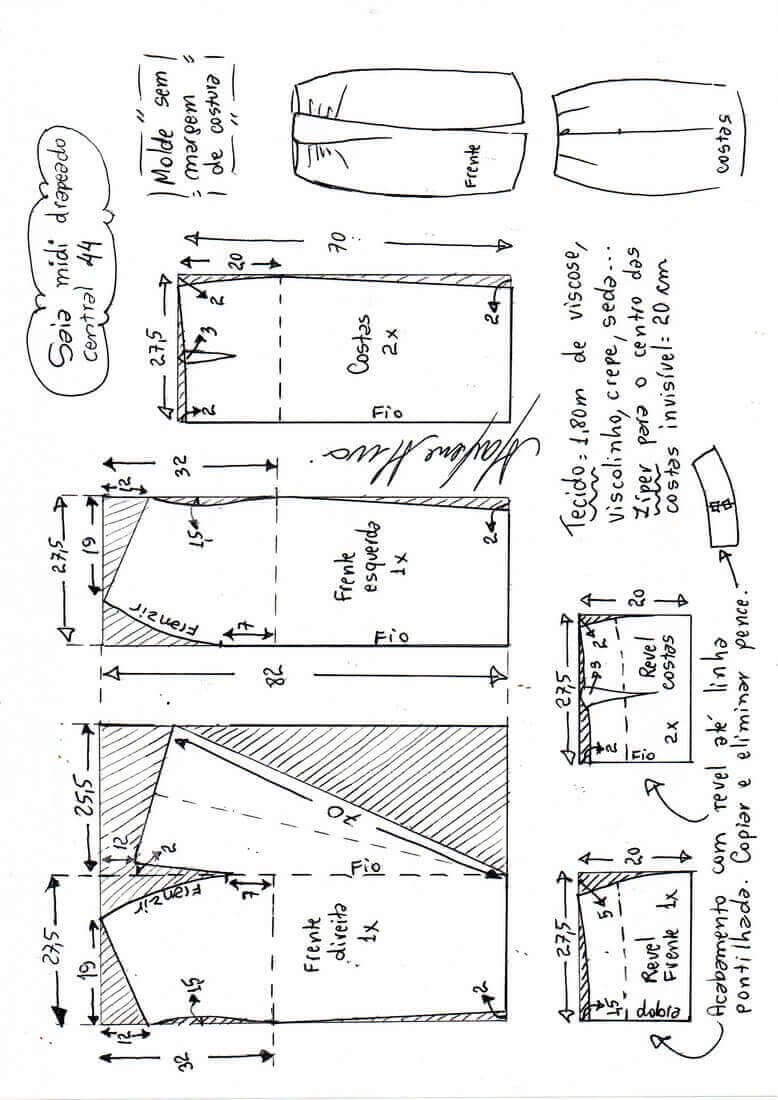 Saia midi drapeado
central 44
Molde sem
margem
de costura
Frente
costas
27,5
20
70
2
3
2
2
Costas
2x
Fio
Marlene Mukai
32
12
27,5
19
1,5
Franzir
Frente
esquerda
1x
2
7
Fio
82
25,5
12
2
70
Fio
Franzir
7
27,5
19
Frente
direita
1x
1,5
2
12
32
Tecido = 1,80m de viscose,
viscolinho, crepe, seda...
Zíper para o centro das
costas invisível = 20 cm
27,5
20
2
3
2
Revel
costas
2x
Fio
27,5
20
5
1,5
Revel
Frente 1x
dobra
Acabamento com revel até linha
pontilhada. Copiar e eliminar pence.